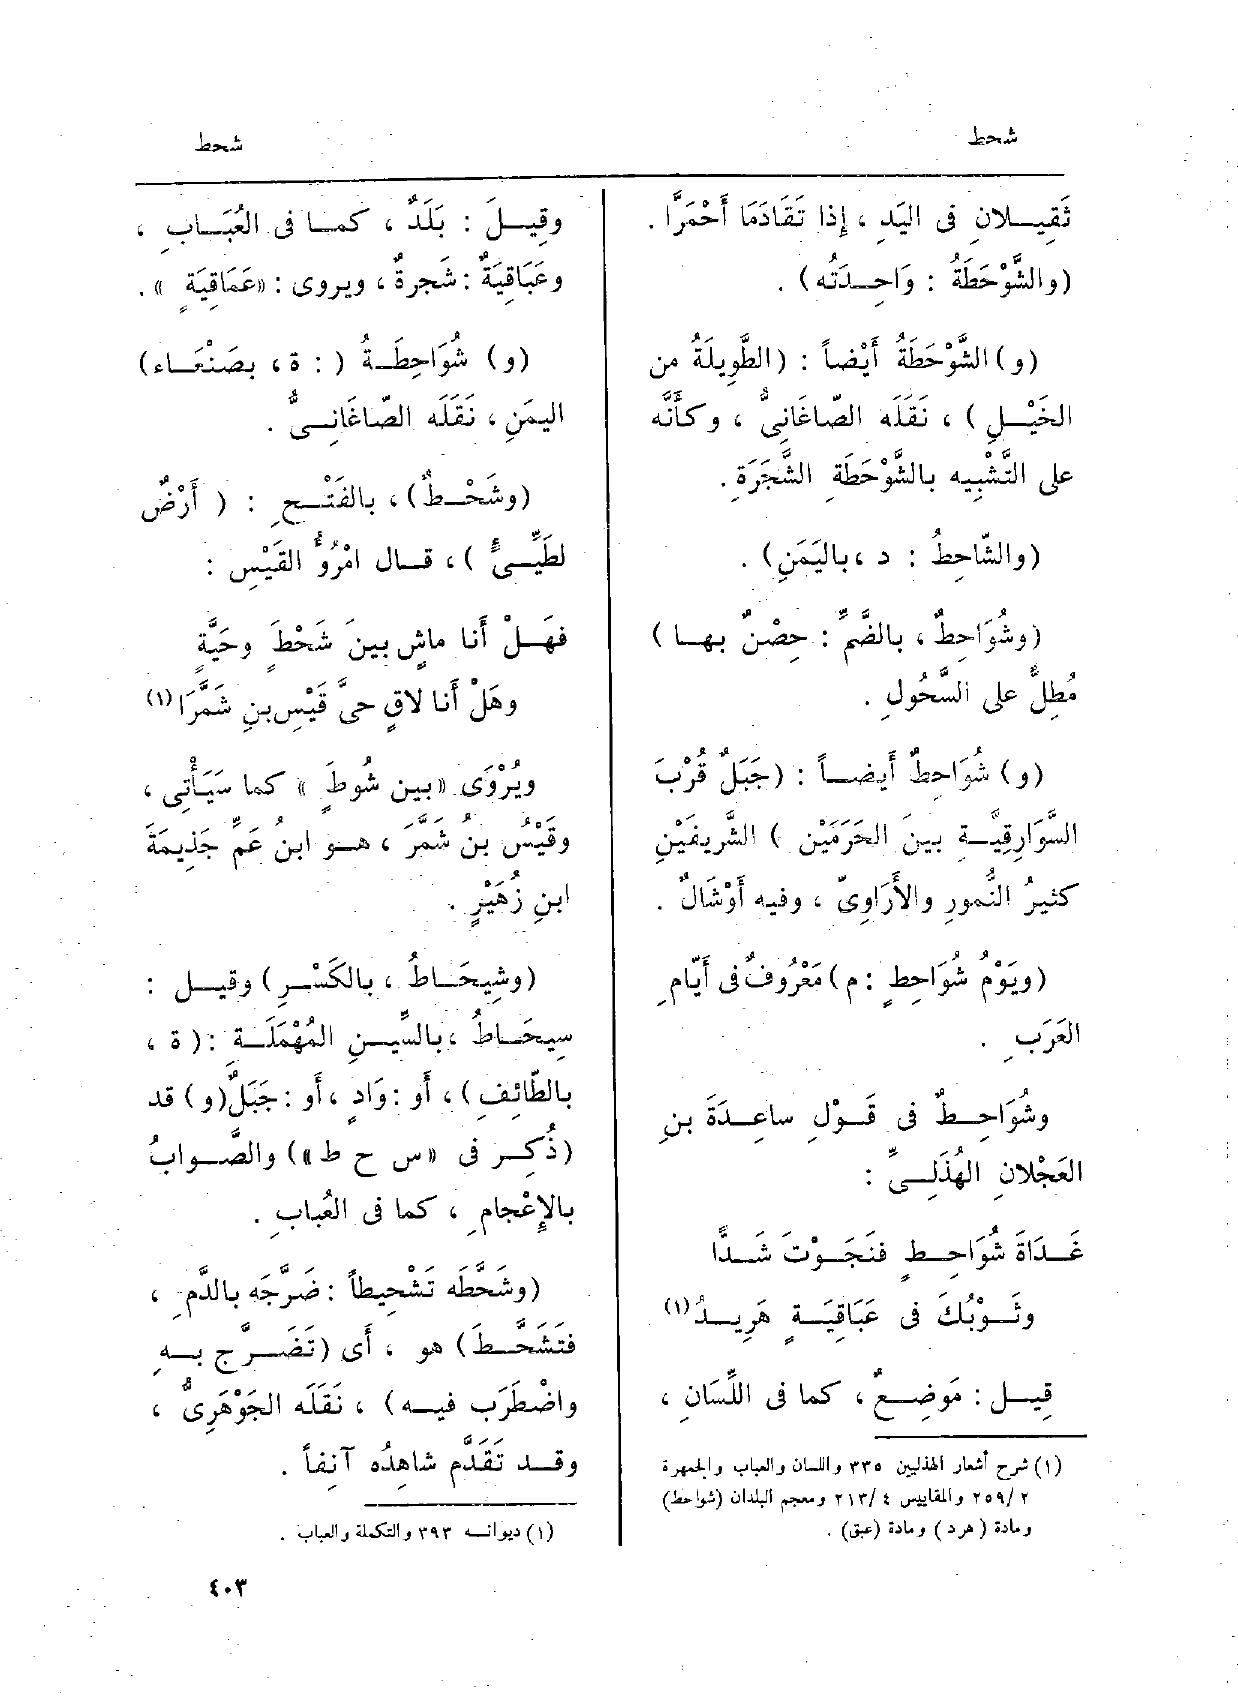 شحط
شحط
ثَقِيلانِ فى اليَدِ ، إذا تَقَادَمَا أَحْمَرَّا .
(والشَّوْحَطَةُ : وَاحِدَتُه) .
(و) الشَّوْحَطَةُ أَيْضاً : (الطَّوِيلَةُ من
الخَيْلِ) ، نَقَلَه الصّاغَانِىُّ ، وكأَنَّه
على التَّشْبِيه بالشَّوْحَطَةِ الشَّجَرَةِ .
(والشّاحِطُ : د ، باليَمَنِ) .
(وشُوَاحِطٌ ، بالضَّمِّ : حِصْنٌ بها)
مُطِلٌّ على السَّحُولِ .
(و) شُوَاحِطٌ أَيضاً : (جَبَلٌ قُرْبَ
السَّوَارِقِيَّةِ بينَ الحَرَمَيْنِ) الشَّرِيفَيْنِ
كثيرُ النُّمورِ والأَرَاوِىّ ، وفيه أَوْشَالٌ .
(ويَوْمُ شُوَاحِطٍ : م) مَعْرُوفٌ فى أَيّامِ
العَرَبِ .
وشُوَاحِطٌ فى قَوْلِ ساعِدَةَ بنِ
العَجْلانِ الهُذَلِىِّ :
غَدَاةَ شُوَاحِطٍ فنَجَوْتَ شَدًّا
وثَوْبُكَ فى عَبَاقِيَةٍ هَرِيدُ (١)
قِيل : مَوْضِعٌ ، كما فى اللِّسَانِ ،
(١) شرح أشعار الهذليين ٣٣٥ واللسان والعباب والجمهرة
٢ / ٢٥٩ والمقاييس ٤ / ٢١٣ ومعجم البلدان (شواحط)
ومادة (هرد) ومادة (عبق) .
وقِيلَ : بَلَدٌ ، كما فى العُبَابِ ،
وعَبَاقِيَةٌ : شَجرةٌ ، ويروى : «عَمَاقِيَةٍ » .
(و) شُوَاحِطَةُ ( : ة ، بصَنْعَاء)
اليمَنِ ، نَقَلَه الصّاغَانِىُّ .
(وشَحْطٌ) ، بالفَتْحِ : ( أَرْضٌ
لطَيِّىءٍ ) ، قال امْرُؤُ القَيْسِ :
فهَلْ أَنا ماشٍ بينَ شَحْطٍ وحَيَّةٍ
وهَلْ أَنا لاقٍ حىَّ قَيْسِ بنِ شَمَّرَا (١)
ويُرْوَى «بين شُوطٍ » كما سَيَأْتِى ،
وقَيْسُ بنُ شَمَّرَ ، هو ابنُ عَمِّ جَذِيمَةَ
ابنِ زُهَيْرٍ .
(وشِيحَاطُ ، بالكَسْرِ) وقيل :
سِيحَاطُ ، بالسِّينِ المُهْمَلَةِ : (ة ،
بالطّائِفِ) ، أَو : وَادٍ ، أَو : جَبَلٌ (و) قد
(ذُكِر فى «س ح ط ») والصَّوابُ
بالإِعْجامِ ، كما فى العُبابِ .
(وشَحَّطَه تَشْحِيطاً : ضَرَّجَه بالدَّمِ ،
فتَشَحَّطَ) هو ، أَى (تَضَرَّجَ بهِ
واضْطَرَب فيه) ، نَقَلَه الجَوْهَرِىُّ ،
وقد تَقَدَّم شاهِدُه آنِفاً .
(١) ديوانه ٣٩٣ والتكملة والعباب .
٤٠٣